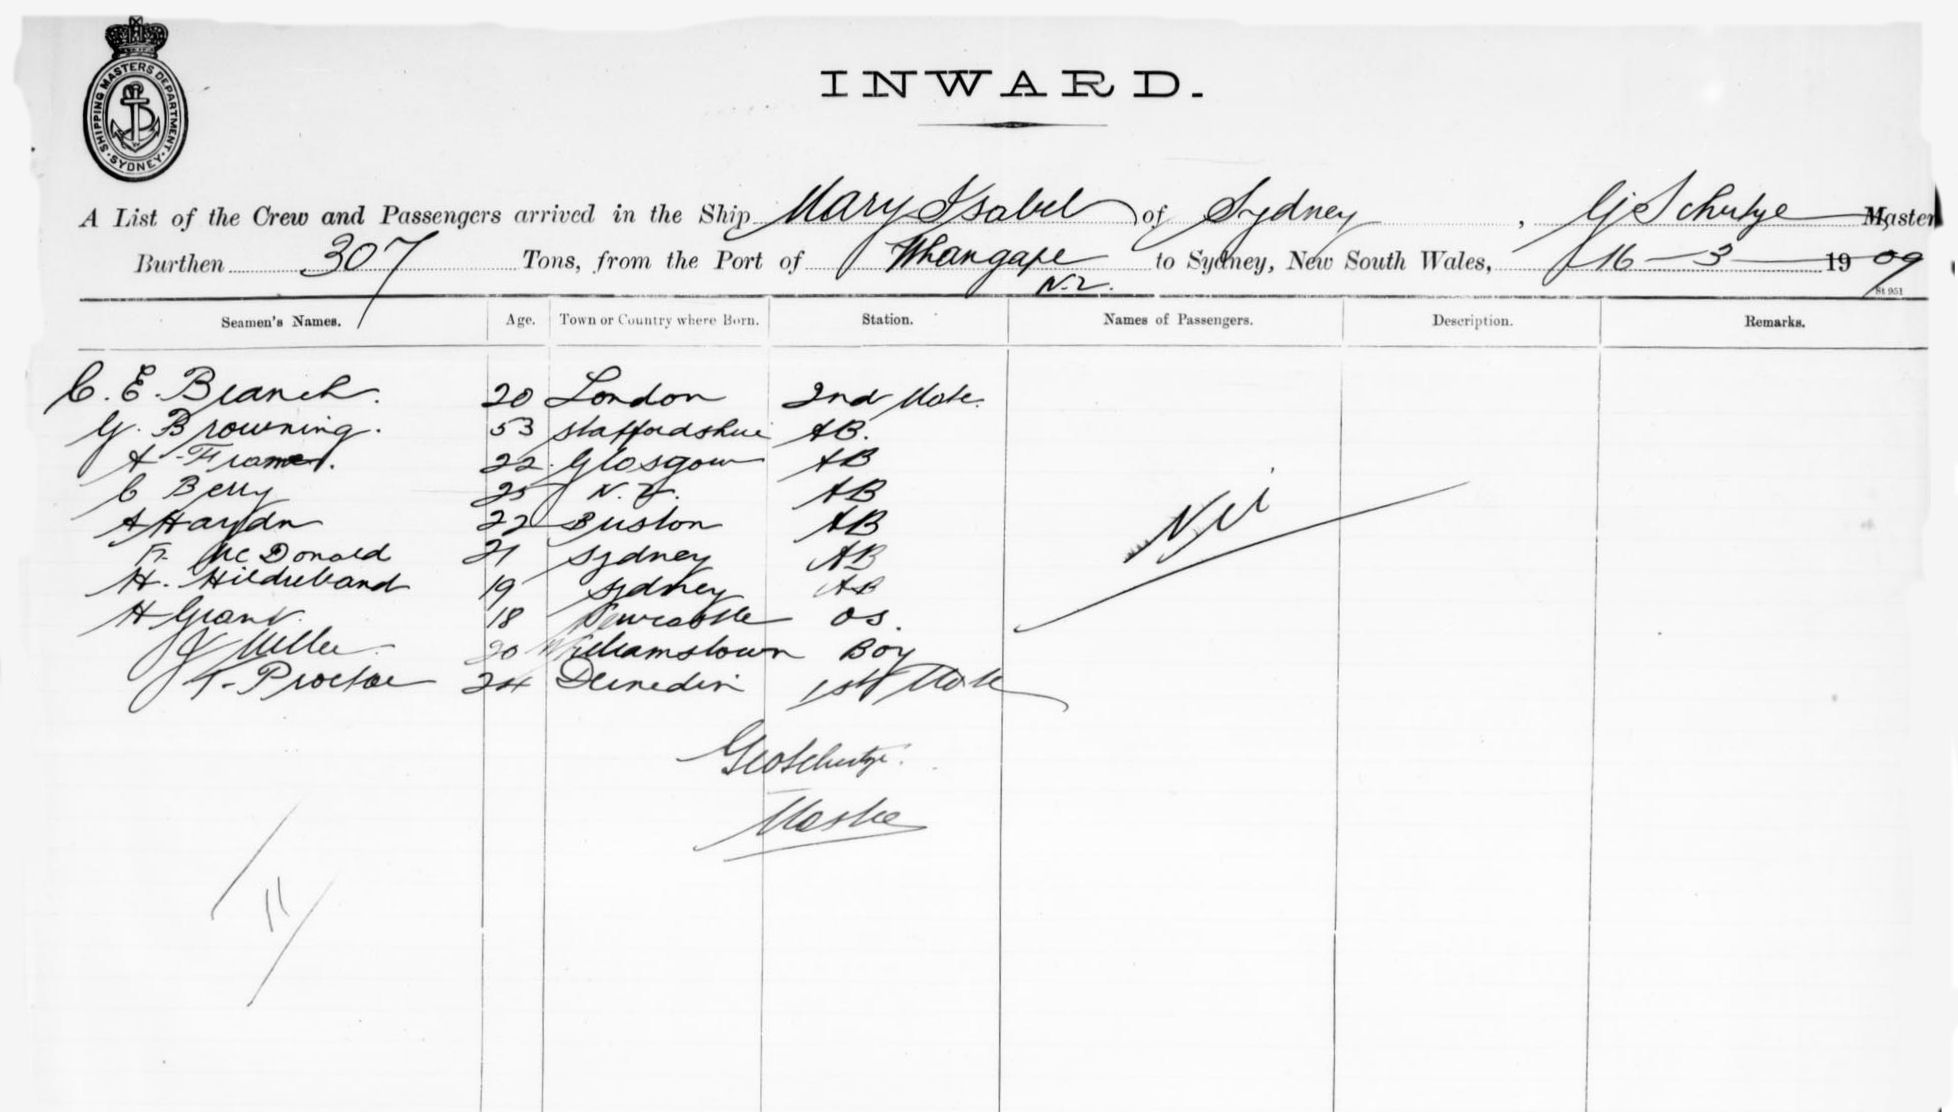 SHIPPING MASTERS DEPARTMENT. SYDNEY
INWARD.
A List of the Crew and Passengers arrived in the Ship Mary Isabel of Sydney, G Schutze Master
Burthen 307 Tons, from the Port of Whangape to Sydney, New South Wales, 16-3-1909
N.Z.
St 951
Seamen's Names. Age. Town or Country where Born. Station. Names of Passengers. Description. Remarks.
C. E. Branch. 20 London 2nd Mate.
G. Browning. 53 Staffordshire AB.
A Frame. 22 Glasgow AB
C Berry 25 N.Z. AB
A Haydn 22 Bristol AB
F. McDonald 21 Sydney AB
H. Hildreband 19 Sydney AB
H Grant 18 Newcastle OS.
J Miller 20 Williamstown Boy
T. Proctor 24 Dunedin 1st Mate
Nil
Geo Schutze.
Master
11